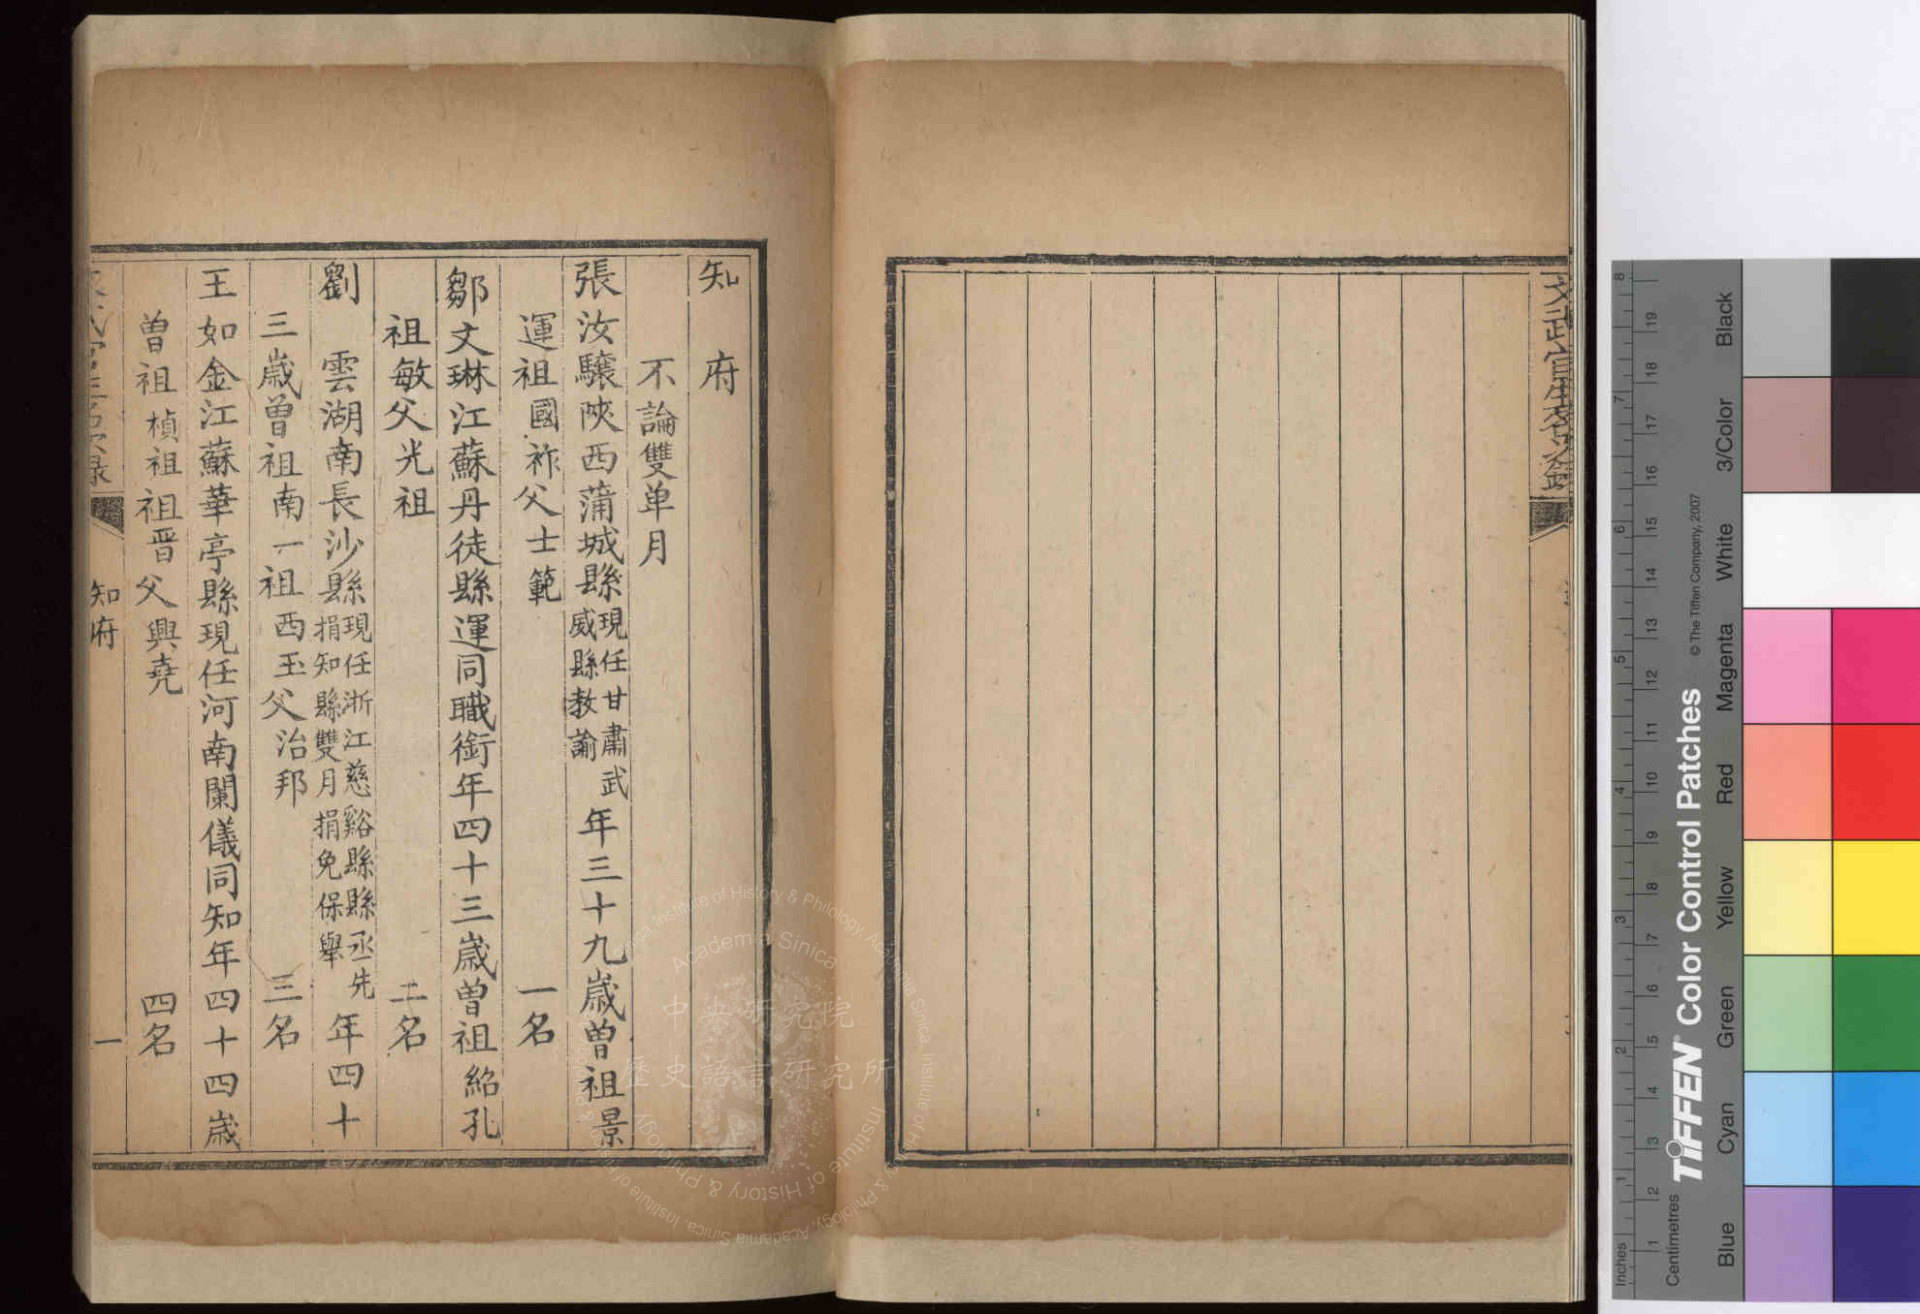 知府
不論雙单月
張汝驤陝西蒲城縣現任甘肅武威縣教諭年三十九歲曾祖景
運祖國祚父士範 一名
鄒文琳江蘇丹徒縣運同職銜年四十三歲曾祖紹孔
祖敏父光祖 二名
劉雲湖南長沙縣現任浙江慈谿縣縣丞先捐知縣雙月捐免保舉年四十
三歲曾祖南一祖西玉父治邦 三名
王如金江蘇華亭縣現任河南蘭儀同知年四十四歲
曾祖楨祖祖晋父興堯 四名
知府
一
中央研究院
歷史語言研究所
Academia Sinica
Institute of History & Philology
Black
3/Color
White
Magenta
Red
Yellow
Green
Cyan
Blue
© The Tiffen Company, 2007
TIFFEN Color Control Patches
Centimetres
Inches